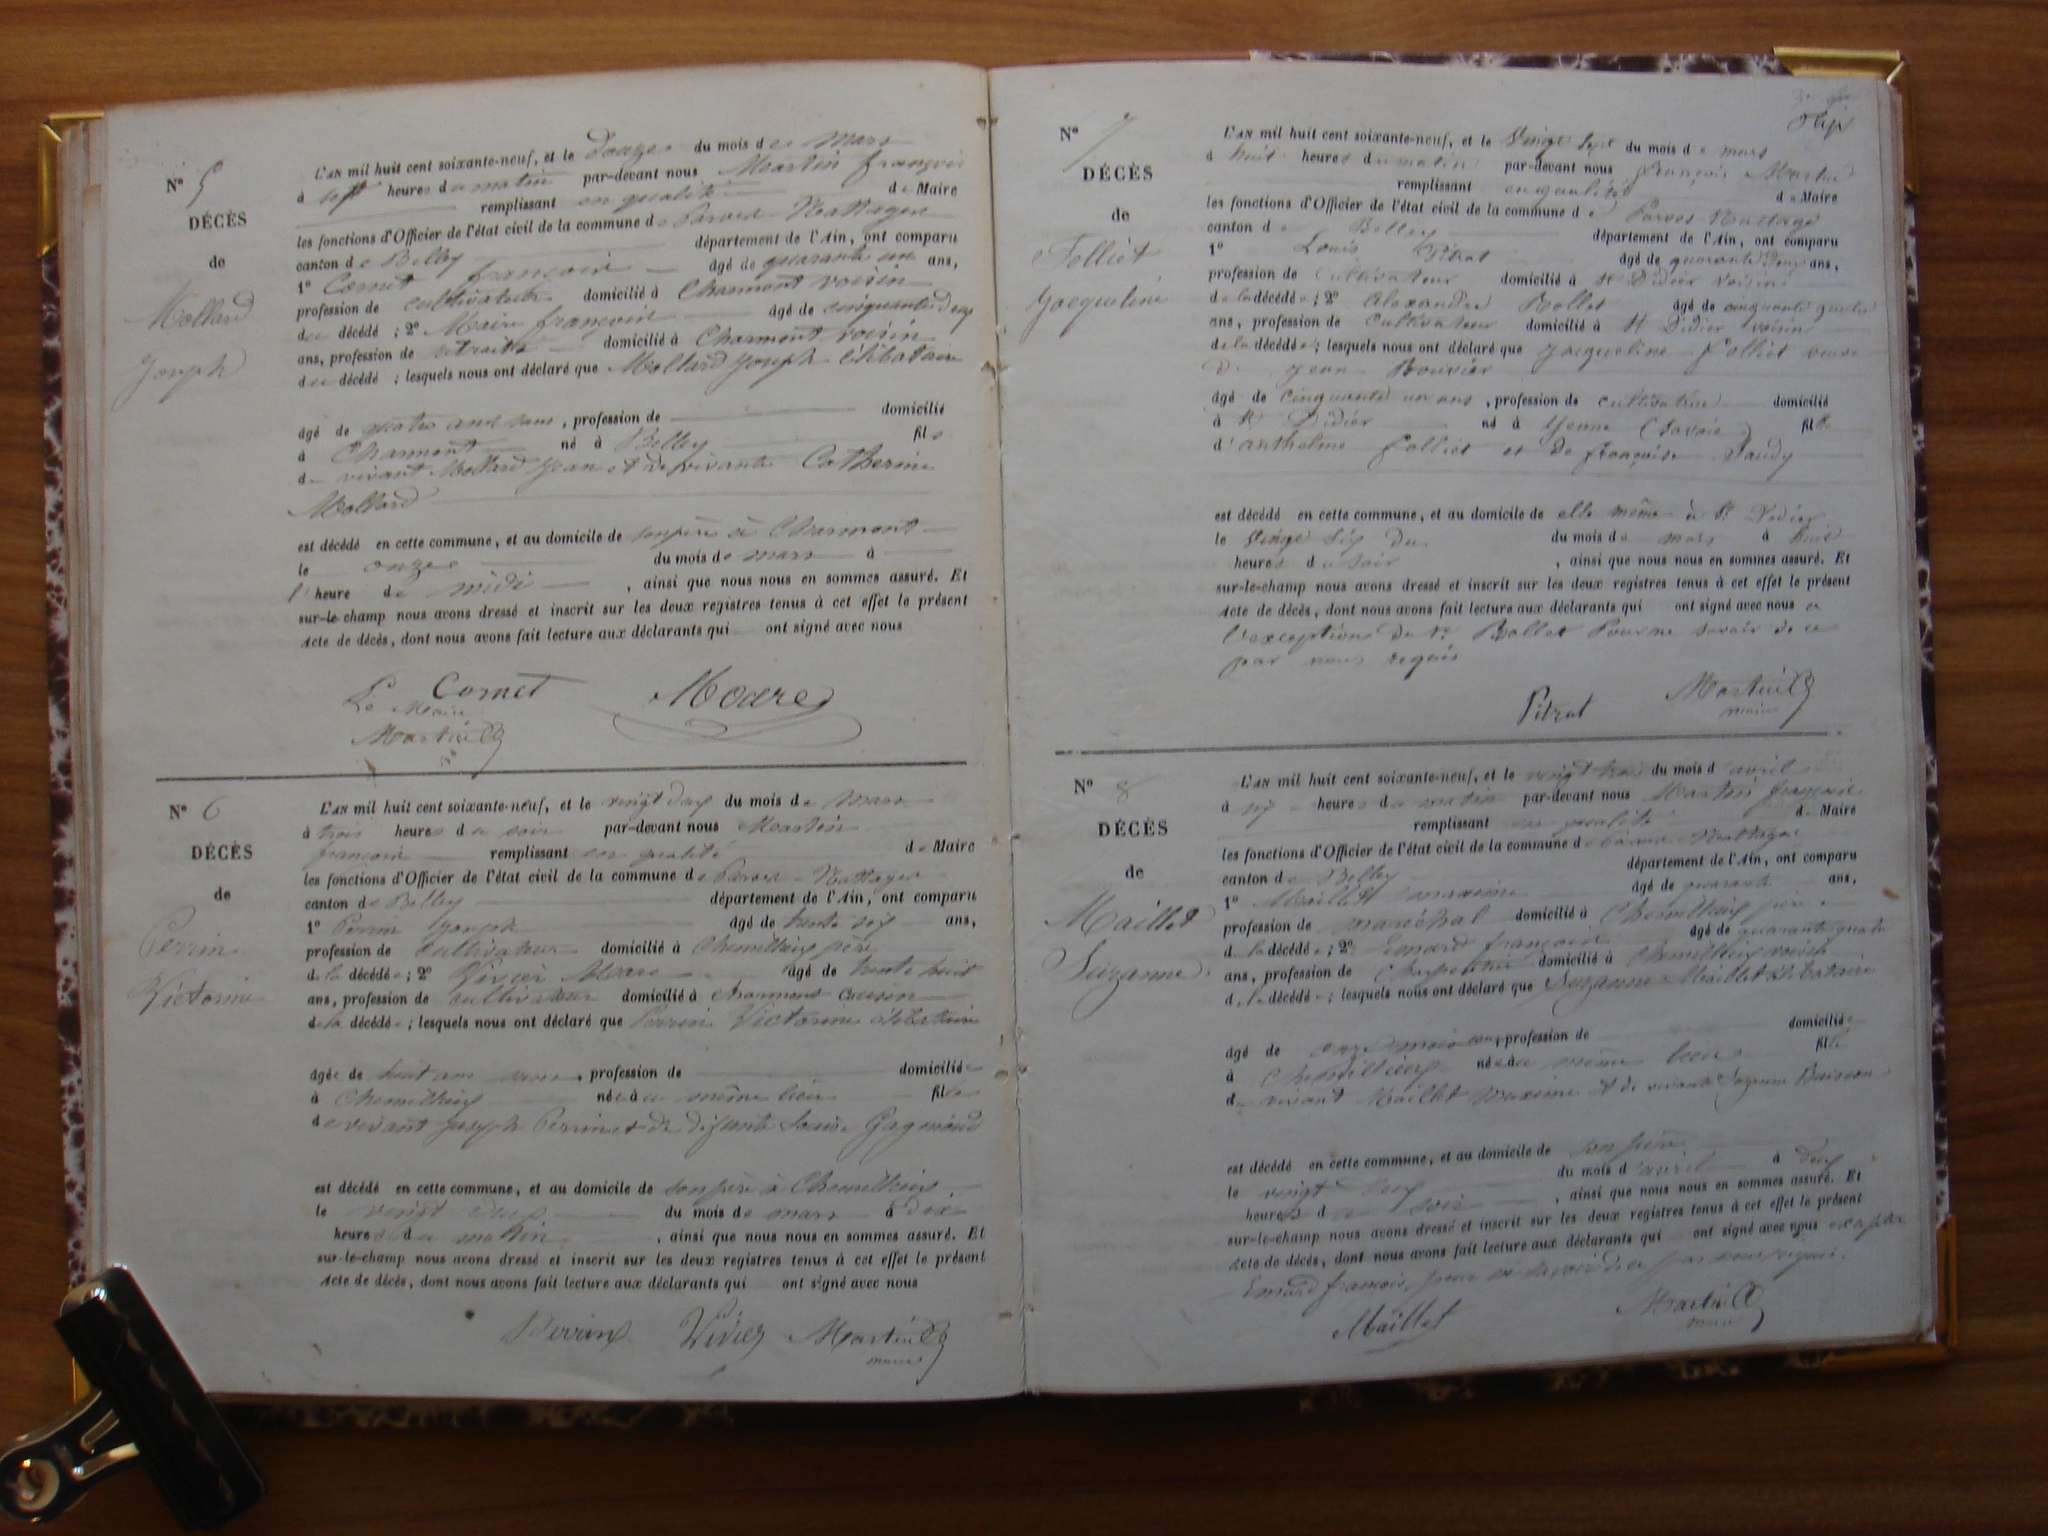 N° 5
DÉCÈS
de
Mollard
Joseph
L'AN mil huit cent soixante-neuf, et le douze du mois de Mars
à sept heures du matin par-devant nous Martin françois
remplissant en qualité de Maire
les fonctions d'Officier de l'état civil de la commune de Parves-Nattages
canton de Belley département de l'Ain, ont comparu
1° Cornet françois âgé de quarante un ans,
profession de cultivateur domicilié à Charmont voisin
du décédé ; 2° françois âgé de cinquante deux
ans, profession de retraité domicilié à Charmont voisin
du décédé ; lesquels nous ont déclaré que Mollard Joseph célibataire
âgé de quatre ans , profession de domicilié
à Charmont né à Belley fils
de vivant Mollard Jean et de vivante Catherine
Mollard
est décédé en cette commune, et au domicile de son père à Charmont
le onze du mois de mars à
l'heure de midi , ainsi que nous nous en sommes assuré. Et
sur-le-champ nous avons dressé et inscrit sur les deux registres tenus à cet effet le présent
Acte de décès, dont nous avons fait lecture aux déclarants qui ont signé avec nous
Cornet
Le Maire
Martin
N° 6
DÉCÈS
de
Perrin
Victorine
L'AN mil huit cent soixante-neuf, et le vingt deux du mois de mars
à trois heures du soir par-devant nous Martin
françois remplissant en qualité de Maire
les fonctions d'Officier de l'état civil de la commune de Parves-Nattages
canton de Belley département de l'Ain, ont comparu
1° Perrin Joseph âgé de trente six ans,
profession de cultivateur domicilié à Chemilleux père
de la décédée ; 2° Vivier âgé de trente huit
ans, profession de cultivateur domicilié à Charmont cousin
de la décédée ; lesquels nous ont déclaré que Perrin Victorine célibataire
âgée de huit ans , profession de domiciliée
à Chemilleux née au même lieu fille
de vivant Joseph Perrin et de défunte Louise
est décédé en cette commune, et au domicile de son père à Chemilleux
le vingt deux du mois de mars à dix
heures du matin , ainsi que nous nous en sommes assuré. Et
sur-le-champ nous avons dressé et inscrit sur les deux registres tenus à cet effet le présent
Acte de décès, dont nous avons fait lecture aux déclarants qui ont signé avec nous
Perrin Vivier Martin
maire
N° 7
DÉCÈS
de
Folliet
Jacqueline
L'AN mil huit cent soixante-neuf, et le vingt sept du mois de mars
à huit heures du matin par-devant nous François Martin
remplissant en qualité de Maire
les fonctions d'Officier de l'état civil de la commune de Parves Nattage
canton de Belley département de l'Ain, ont comparu
1° Louis Pitrat âgé de quarante deux ans,
profession de cultivateur domicilié à St Didier voisin
de la décédée ; 2° Alexandre Bollet âgé de cinquante quatre
ans, profession de cultivateur domicilié à St Didier voisin
de la décédée ; lesquels nous ont déclaré que Jacqueline Folliet veuve
de Jean Bouvier
âgé de cinquante un ans , profession de cultivatrice domicilié
à St Didier né à Yenne (Savoie) fille
d'anthelme Folliet et de françoise
est décédé en cette commune, et au domicile de elle même à St Didier
le vingt six du du mois de mars à huit
heures du soir , ainsi que nous nous en sommes assuré. Et
sur-le-champ nous avons dressé et inscrit sur les deux registres tenus à cet effet le présent
Acte de décès, dont nous avons fait lecture aux déclarants qui ont signé avec nous a
l'exception de Sr Bollet pour ne savoir de ce
par nous requis
Pitrat Martin
maire
N° 8
DÉCÈS
de
Maillet
Suzanne
L'AN mil huit cent soixante-neuf, et le vingt trois du mois d'avril
à six heures du matin par-devant nous Martin françois
remplissant en qualité de Maire
les fonctions d'Officier de l'état civil de la commune de Parves-Nattages
canton de Belley département de l'Ain, ont comparu
1° Maillet maxime âgé de quarante ans,
profession de maréchal domicilié à Chemilleux père
de la décédée ; 2° Emard françois âgé de quarante quatre
ans, profession de charpentier domicilié à Chemilleux voisin
de la décédée ; lesquels nous ont déclaré que Suzanne Maillet célibataire
âgé de onze mois , profession de domiciliée
à Chemilleux née au même lieu fille
de vivant Maillet maxime et de vivante
est décédé en cette commune, et au domicile de son père
le vingt deux du mois d'avril à deux
heures du soir , ainsi que nous nous en sommes assuré. Et
sur-le-champ nous avons dressé et inscrit sur les deux registres tenus à cet effet le présent
Acte de décès, dont nous avons fait lecture aux déclarants qui ont signé avec nous excepté
Emard françois, pour ne savoir de ce par nous requis.
Maillet Martin
maire